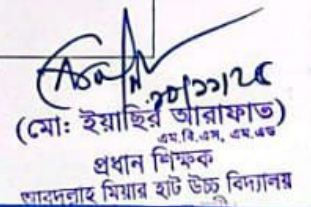 ২০/১১/২৫
(মো: ইয়াছির আরাফাত)
এম.বি.এস, এম.এড
প্রধান শিক্ষক
আবদুল্লাহ মিয়ার হাট উচ্চ বিদ্যালয়